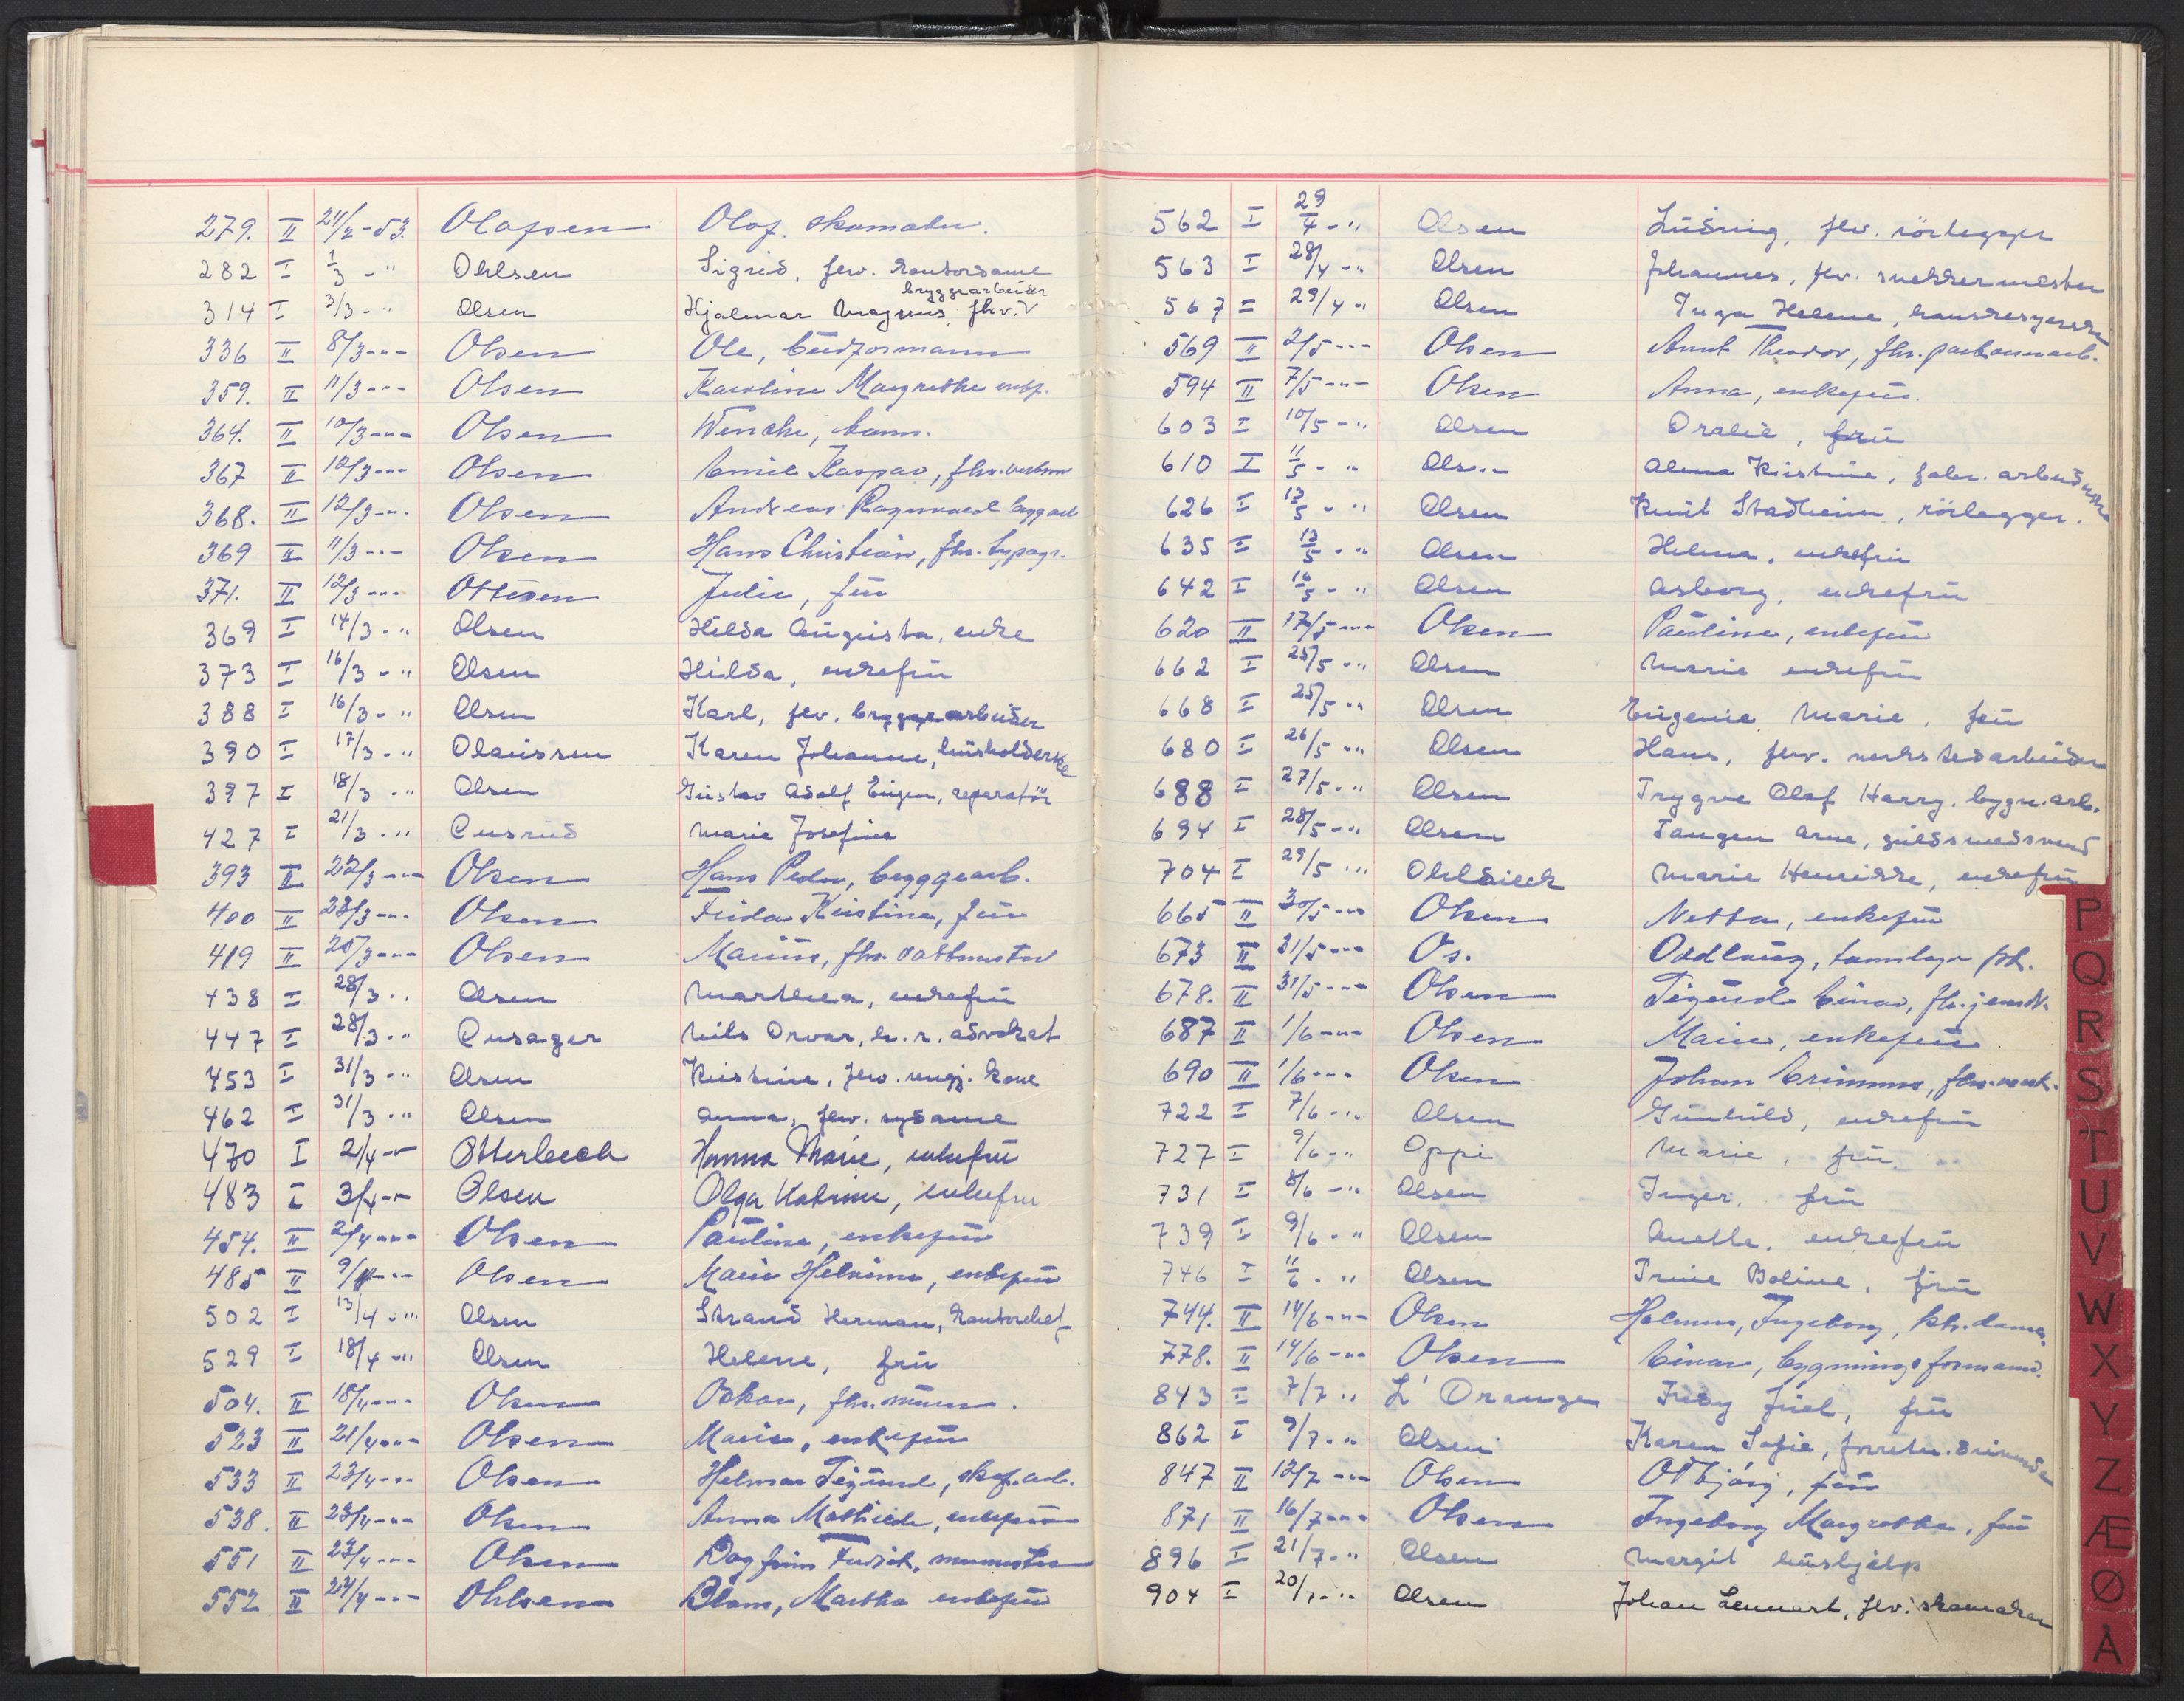 279. II 24/2-53. Olafsen Olaf. skomaker.
282 I 1/3 - " Ohlsen Sigrid, fhv. kontordame
314 I 3/3 - " Olsen Hjalmar Magnus, fhv. bryggearbeider
336 II 8/3 - " - Olsen Ole, budformann
359. II 11/3 - " - Olsen Karoline Margrethe
364. II 10/3 - " - Olsen Wenche, barn.
367 II 10/3 - " - Olsen Emil Kaspar, fhv.
368. II 12/3 - " - Olsen Andreas Ragnvald
369 II 11/3 - " - Olsen Hans Christian, fhv. typogr.
371. II 12/3 - " - Ottesen Julie, frú
369 I 14/3 - " Olsen Hilda Augusta, enke
373 I 16/3 - " Olsen Hilda, enkefrú
388 I 16/3 - " Olsen Karl, fhv. bryggearbeider
390 I 17/3 - " Olaussen Karen Johanne, husholderske
397 I 18/3 - " Olsen Gustav Adolf Eugen, reparatør
427 I 21/3 - " Onsrud Marie Josefine
393 II 22/3 - " - Olsen Hans Peder, bryggearb.
400 II 23/3 - " - Olsen Frida Kristine, frú
419 II 25/3 - " - Olsen Marius, fhv.
438 I 28/3 - " Olsen Marthea, enkefrú
447 I 28/3 - " Onsager Nils Orvar, h.r. advokat
453 I 31/3 - " Olsen Kristine, fhv. rengj. kone
462 I 31/3 - " Olsen Anna, fhv. sydame
470 I 2/4 - " Otterbech Hanna Marie, enkefrú
483 I 3/4 - " Olsen Olga Katrine, enkefrú
454. II 2/4 - " - Olsen Pauline, enkefrú
485 II 9/4 - " - Olsen Marie Helvine, enkefrú
502 I 13/4 - " Olsen Strand Herman, kontorchef
529 I 18/4 - " Olsen Helene, frú
504. II 18/4 - " - Olsen Oskar, fhv. murer.
523 II 21/4 - " - Olsen Marie, enkefrú
533 II 23/4 - " - Olsen Helmer Sigurd,
538. II 23/4 - " - Olsen Anna Mathilde, enkefrú
551 II 23/4 - " - Olsen Dagfinn Fredrik, murmester
552 II 24/4 - " - Ohlsen Blom, Martha enkefrú
562 I 29/4 - " Olsen Ludvig, fhv. rörlegger
563 I 28/4 - " Olsen Johannes, fhv. snekkermester
567 I 29/4 - " Olsen Inga Helene, hanskesyerske
569 II 2/5 - " - Olsen Arnt Theodor, fhv.
594 II 7/5 - " - Olsen Anna, enkefrú.
603 I 10/5 - " Olsen Oralie, frú
610 I 11/5 - " Olsen Alma Kristine, fabr. arbeiderske
626 I 13/5 - " Olsen Knut Stadheim, rörlegger.
635 I 13/5 - " Olsen Helma, enkefrú
642 I 16/5 - " Olsen Asborg, enkefrú
620 II 17/5 - " - Olsen Pauline, enkefrú
662 I 25/5 - " Olsen Marie enkefrú
668 I 25/5 - " Olsen Eugenie Marie, frú
680 I 26/5 - " Olsen Hans, fhv. verkstedarbeider
688 I 27/5 - " Olsen Trygve Olaf Harry, bygn. arb.
694 I 28/5 - " Olsen Tangen Arne, gullsmedsvend
704 I 29/5 - " Ohldieck Marie Henrikke, enkefrú
665 II 30/5 - " - Olsen Netta, enkefrú
673 II 31/5 - " - Os. Oddlaug,
678. II 31/5 - " - Olsen Sigurd Einar,
687 II 1/6 - " - Olsen Marie, enkefrú
690 II 1/6 - " - Olsen Johan
722 I 7/6 - " Olsen Gunhild, enkefrú
727 I 9/6 - " Oppi Marie, frú
731 I 8/6 - " Olsen Inger, frú
739 I 9/6 - " Olsen Anette, enkefrú
746 I 11/6 - " Olsen Trine Boline, frú
744. II 14/6 - " - Olsen Holmen, Ingeborg, ktr. dame.
778. II 14/6 - " - Olsen Einar, bygningsformann.
843 I 7/7 - " L'Orange Juel, frú
862 I 9/7 - " Olsen Karen Sofie,
847 II 12/7 - " - Olsen Oddbjörg, frú
871 II 16/7 - " - Olsen Ingeborg Margrethe, frú
896 I 21/7 - " Olsen Margit húshjelp
904 I 20/7 - " Olsen Johan Lennart, fhv. skomaker
P
Q
R
S
T
U
V
W
X
Y
Z
Æ
Ø
Å